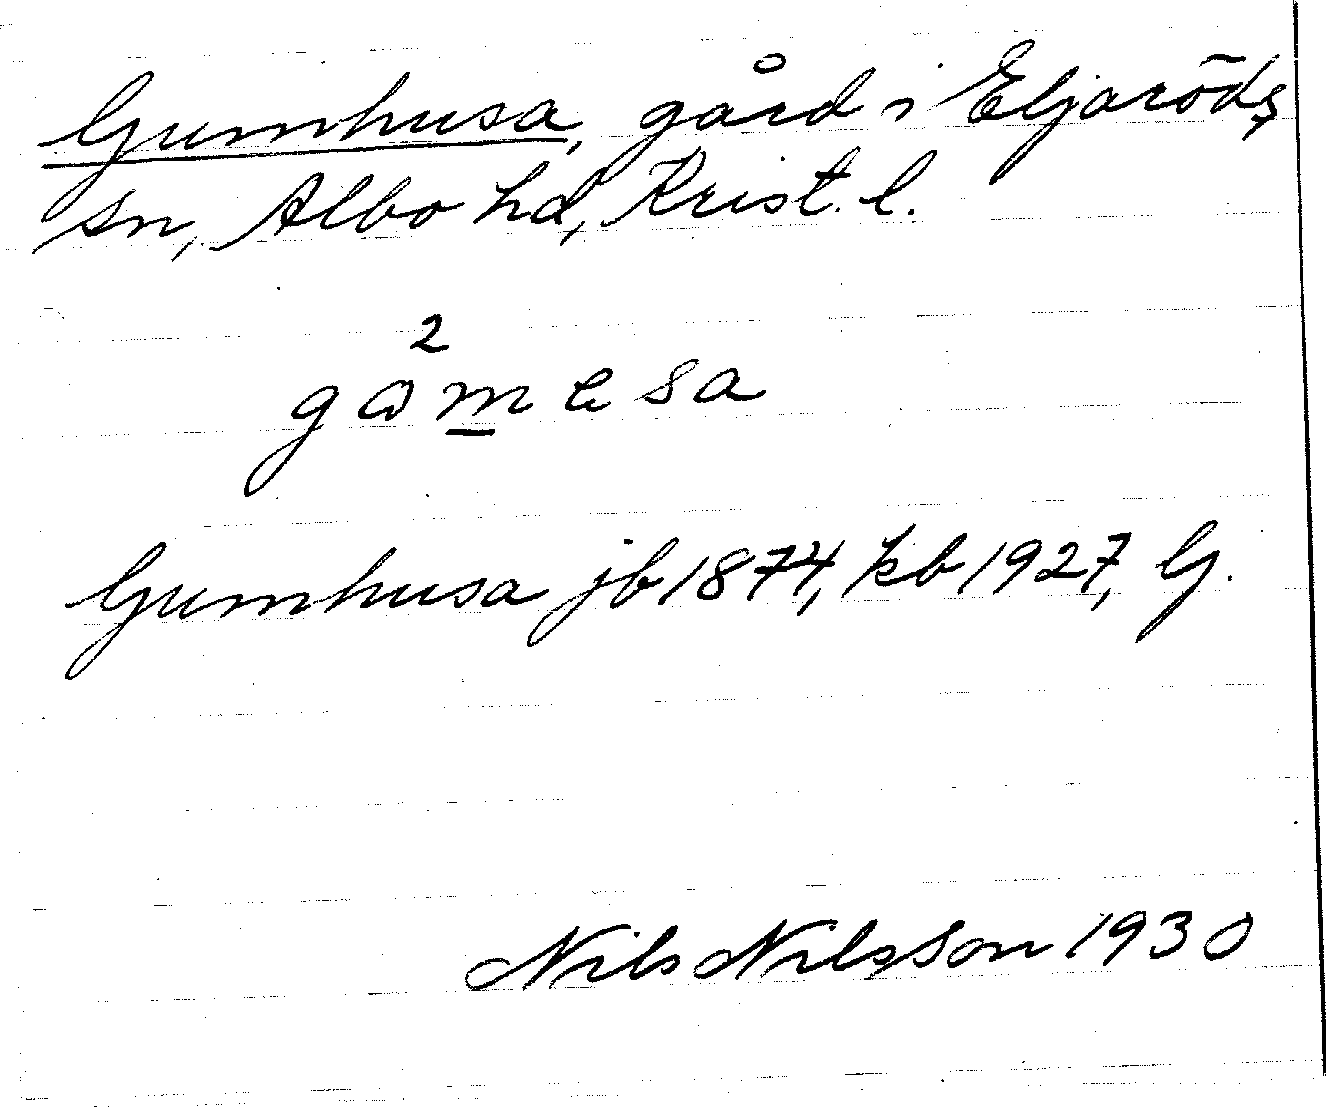 Gumhusa, gård i Eljaröds
sn, Albo hd, Krist. l.
2
gɷmesa
Gumhusa jb 1874, kb 1927, G.
Nils Nilsson 1930